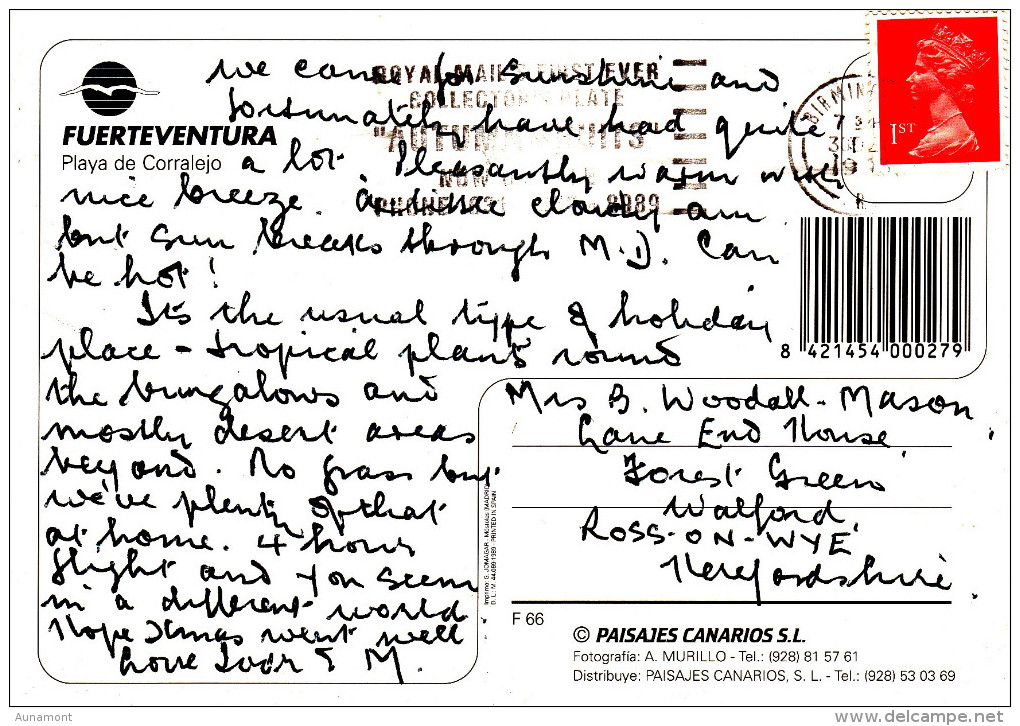 FUERTEVENTURA
Playa de Corralejo
We came for sunshine and
fortunately have had quite
a lot. Pleasantly warm with
nice breeze. A little cloudy am
but sun breaks through M.D. Can
be hot!
Its the usual type of holiday
place - tropical plants round
the bungalows and
mostly desert areas
beyond. No grass but
we've plenty of that
at home. 4 hours
flight and you seem
in a different world
Hope Xmas went well
Love
M.
ROYAL MAIL'S FIRST EVER
COLLECTOR'S PLATE
"AUTUMN
NOW
PHONE
8989
BIRMIN
1ST
8 421454 000279
Mrs B. Woodall-Mason
Lane End House
Forest Green
Walford
ROSS-ON-WYE
Herefordshire
Imprime: G. JOMAGAR - Móstoles (MADRID)
D. L.: M. 44.089-1989 - PRINTED IN SPAIN
F 66
© PAISAJES CANARIOS S.L.
Fotografía: A. MURILLO - Tel.: (928) 81 57 61
Distribuye: PAISAJES CANARIOS, S. L. - Tel.: (928) 53 03 69
Aunamont
delcampe.net